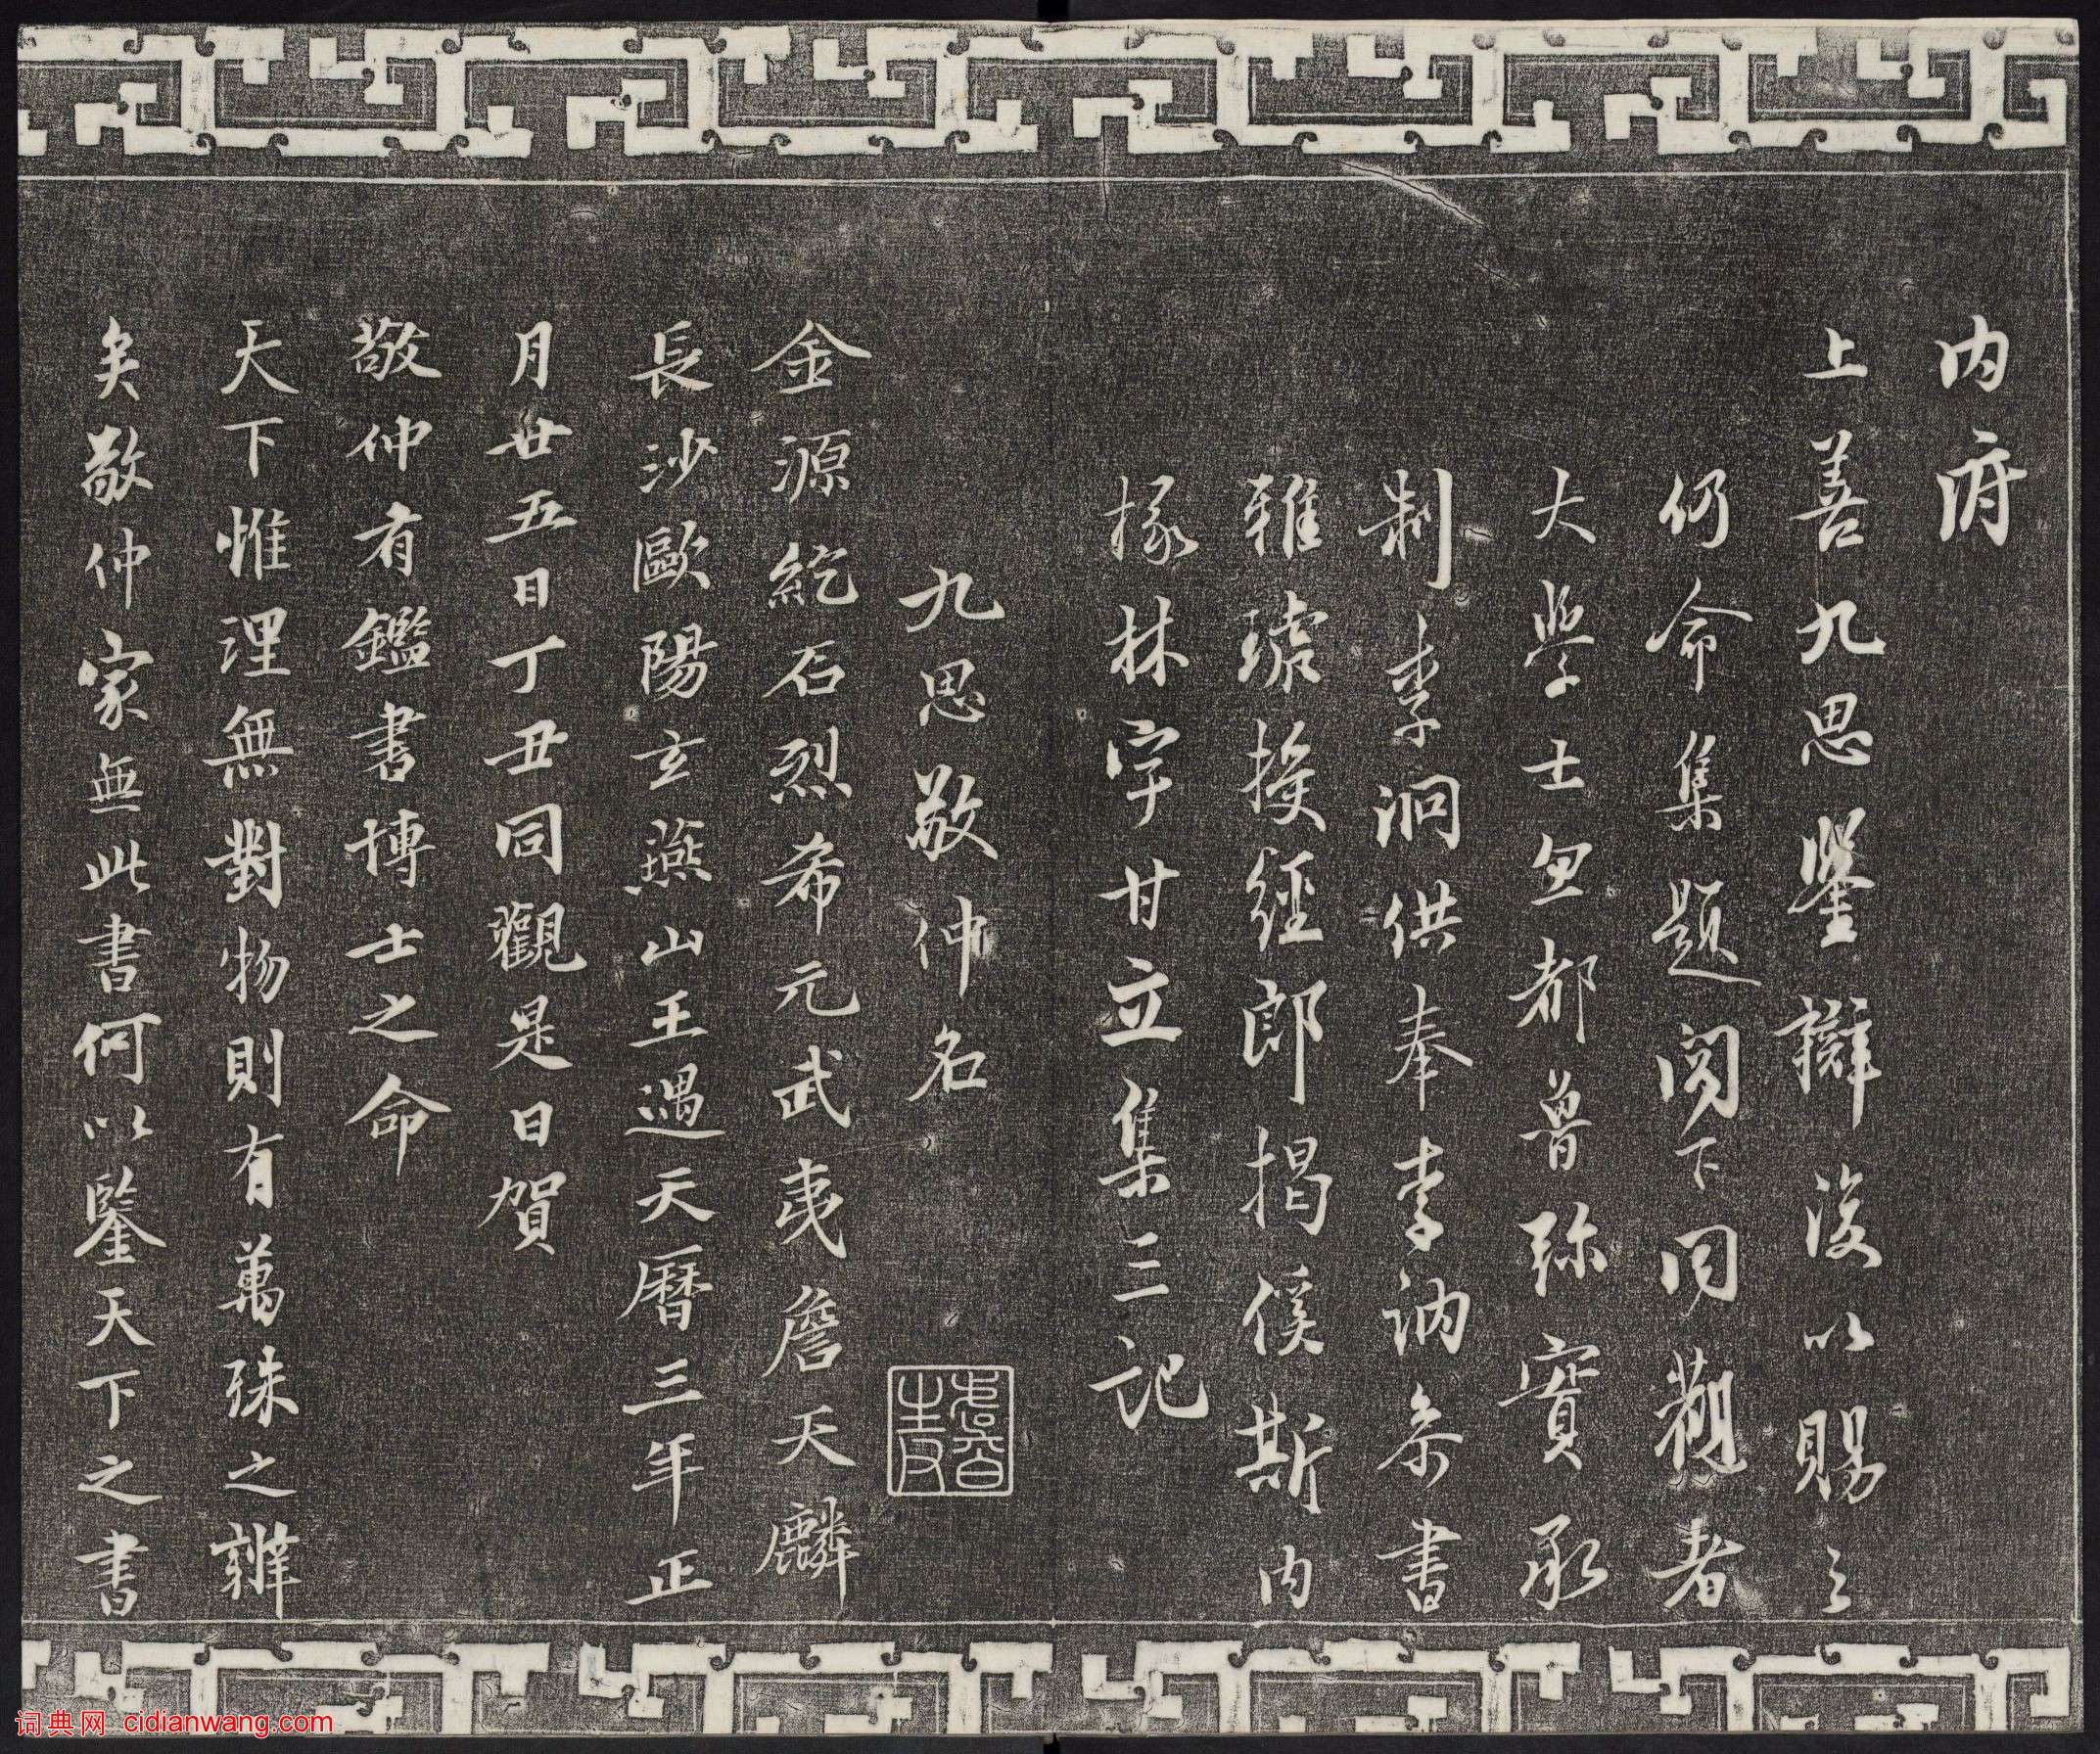 内府
上善九思鑒辯復以賜之
仍命集題閣下同觀者
大學士忽都魯弥實承
制李泂供奉李訥參書
雅琥授經郎揭傒斯内
掾林宇甘立集三記
九思敬仲名
金源紇石烈希元武夷詹天麟
長沙歐陽玄燕山王遇天曆三年正
月廿五日丁丑同觀是日賀
敬仲有鑑書博士之命
天下惟理無對物則有萬殊之辨
矣敬仲家無此書何以鑒天下之書
词典网 cidianwang.com